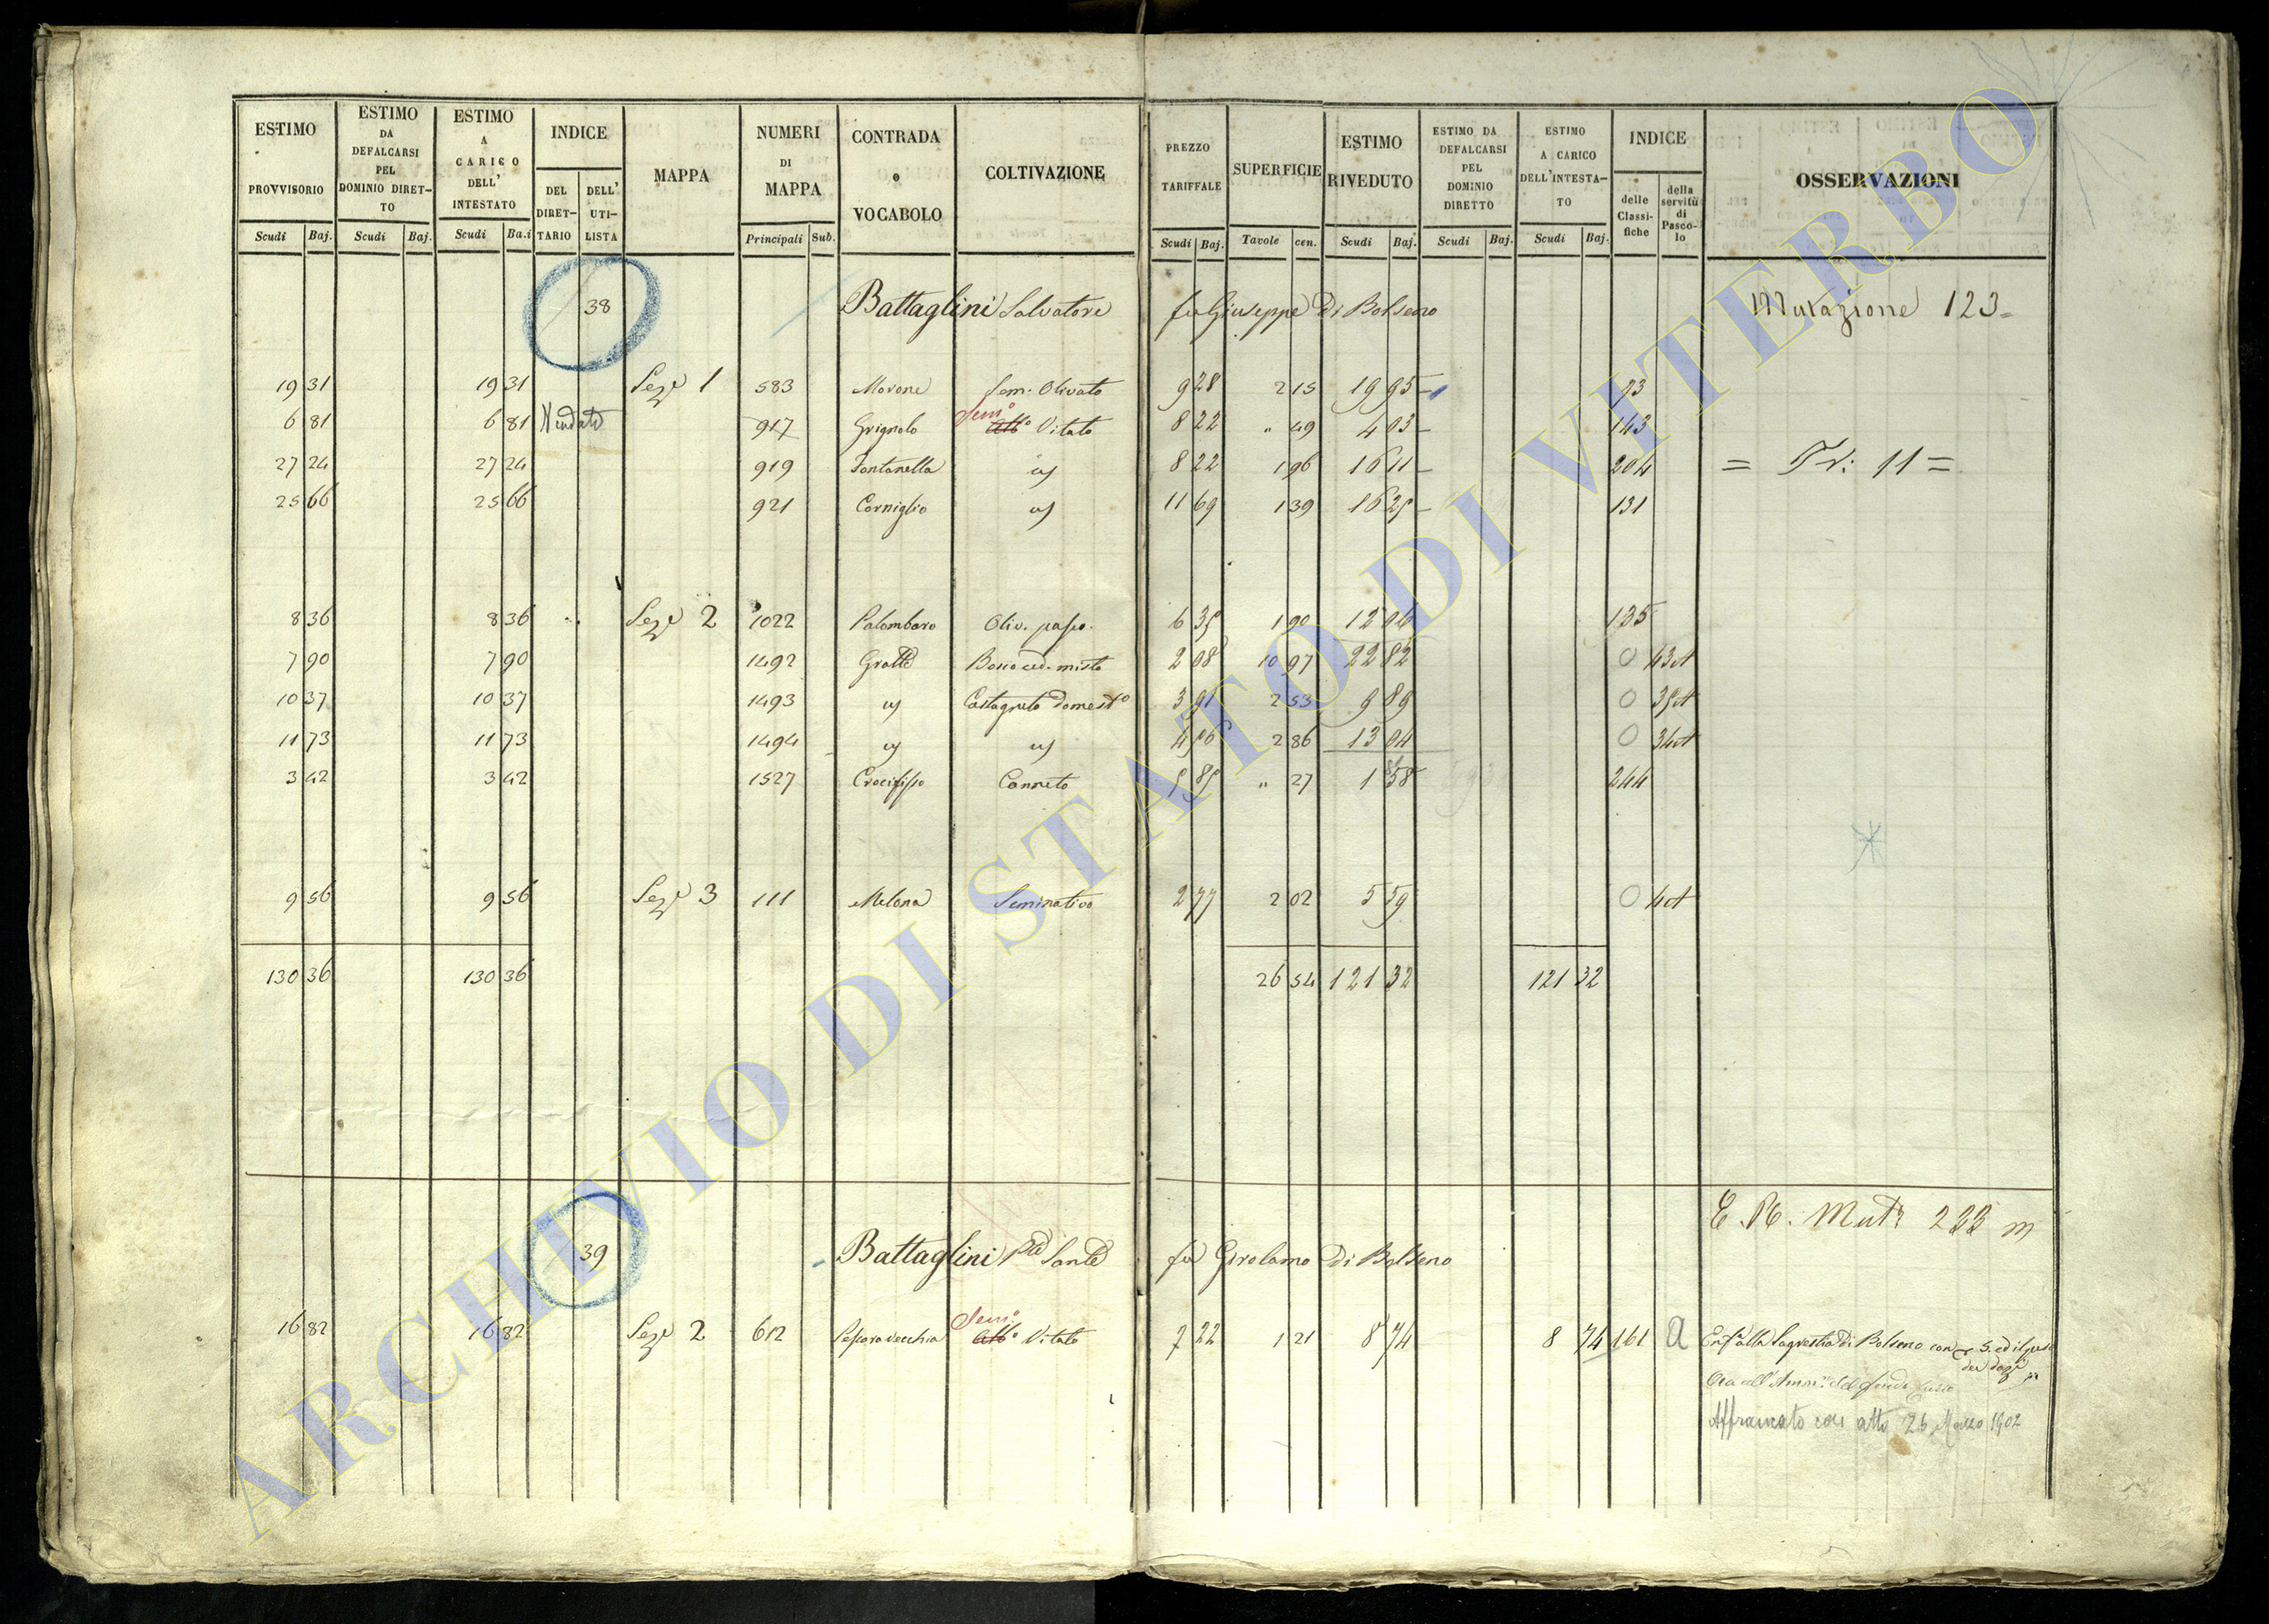 ESTIMO PROVVISORIO Scudi Baj.
ESTIMO DA DEFALCARSI PEL DOMINIO DIRET-TO Scudi Baj.
ESTIMO A CARICO DELL' INTESTATO Scudi Ba.i
INDICE DEL DIRET-TARIO DELL' UTI-LISTA
MAPPA
NUMERI DI MAPPA Principali Sub.
CONTRADA e VOCABOLO
COLTIVAZIONE
PREZZO TARIFFALE Scudi Baj.
SUPERFICIE Tavole cen.
ESTIMO RIVEDUTO Scudi Baj.
ESTIMO DA DEFALCARSI PEL DOMINIO DIRETTO Scudi Baj.
ESTIMO A CARICO DELL'INTESTA-TO Scudi Baj.
INDICE delle Classi-fiche della servitù di Pasco-lo
OSSERVAZIONI
38 Battaglini Salvatore fu Giuseppe Di Bolseno Mutazione 123
19 31 19 31 Sez.e 1 583 Morone Sem. Olivato 9 28 2 15 19 95 73
6 81 6 81 917 Grignolo Sem.o Vitato 8 22 " 49 4 03 143
27 24 27 24 919 Fontanella id 8 22 1 96 16 11 204 = Tr: 11 =
25 66 25 66 921 Corniglio id 11 69 1 39 16 25 131
8 36 8 36 Sez.e 2 1022 Palombaro Oliv. pasco. 6 35 1 90 12 06 135
7 90 7 90 1492 Grotte Bosco ced. misto 2 08 10 97 22 82 0 43
10 37 10 37 1493 id Castagneto Domest.o 3 91 2 53 9 89 0 35
11 73 11 73 1494 id id 4 56 2 86 13 04 0 34
3 42 3 42 1527 Crocifisso Canneto 5 85 " 27 1 58 244
9 56 9 56 Sez.e 3 111 Melona Seminativo 2 77 2 02 5 59 0 4
130 36 130 36 26 54 121 32 121 32
E. R. Mut. 233
39 Battaglini Sante fu Girolamo Di Bolseno
16 82 16 82 Sez.e 2 612 Pescara vecchia Sem.o Vitato 7 22 1 21 8 74 8 74 161 a Enf.a alla Sagrestia Di Bolseno con
Affrancato con atto 26 Marzo 1902
ARCHIVIO DI STATO DI VITERBO